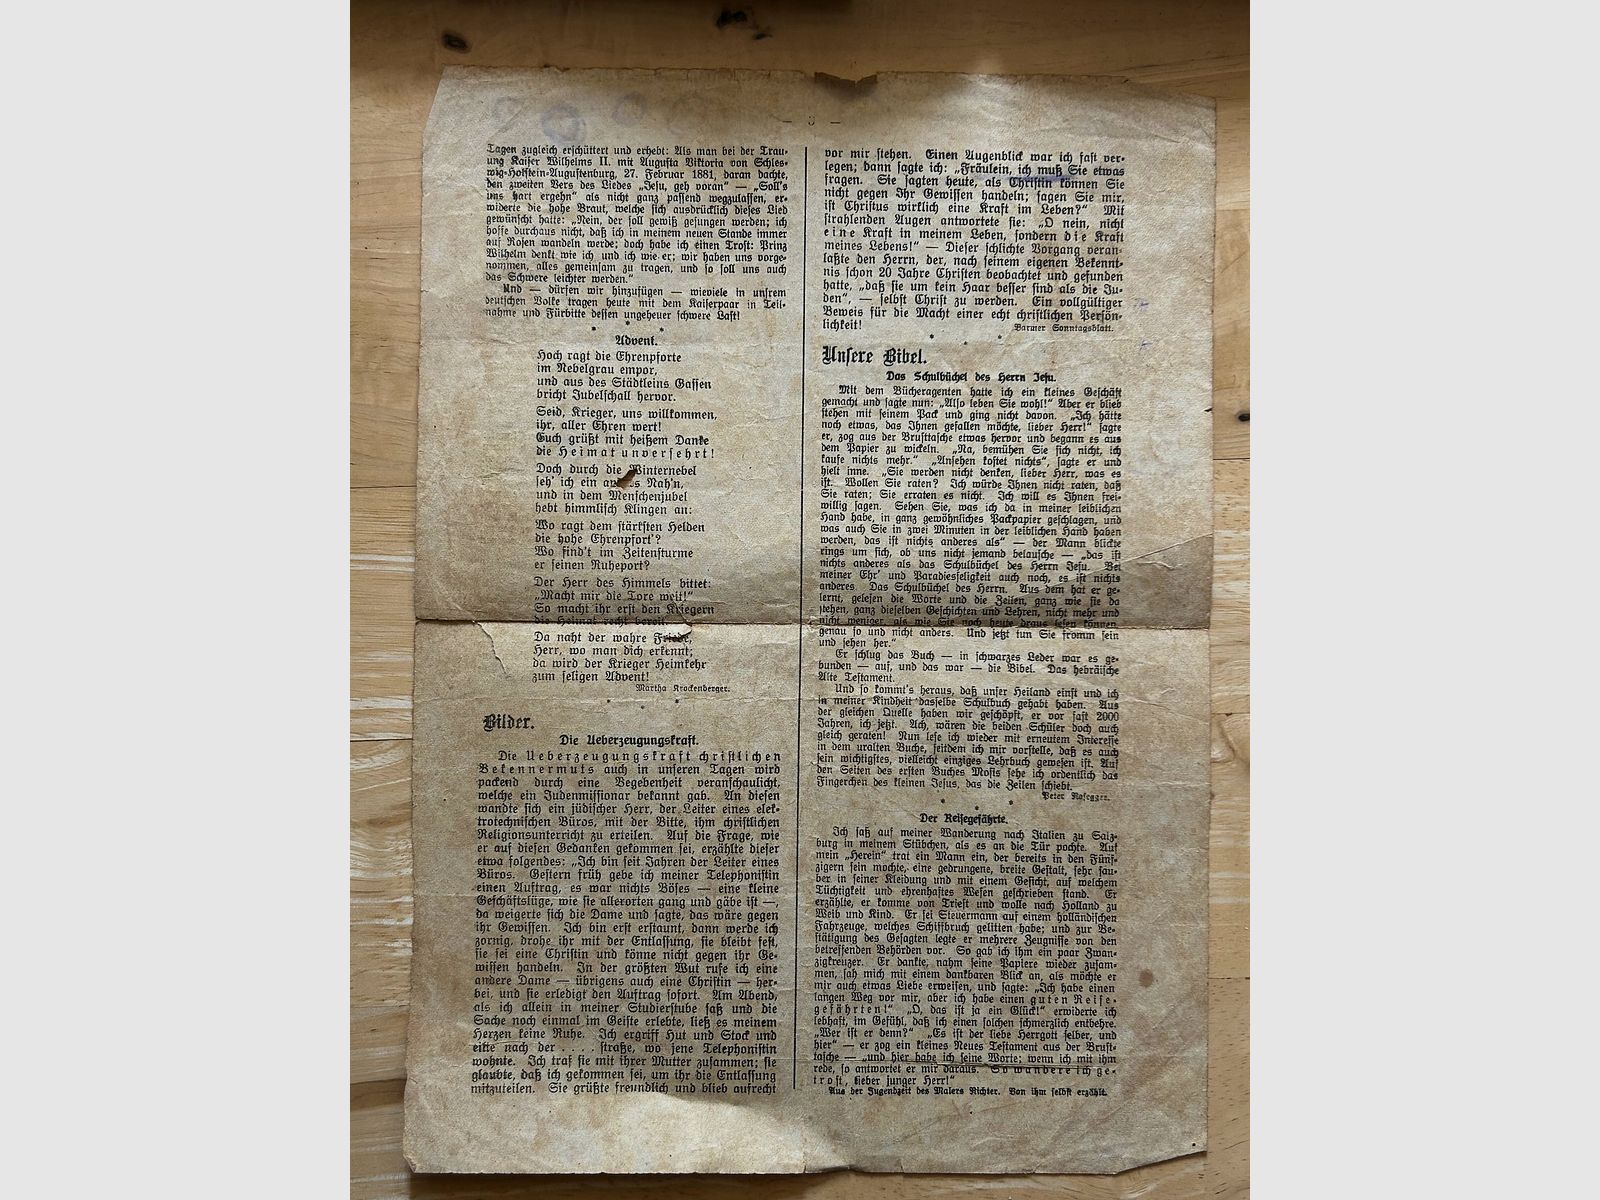 — 3 —
Tagen zugleich erschüttert und erhebt: Als man bei der Trau-
ung Kaiser Wilhelms II. mit Augusta Viktoria von Schles-
wig-Holstein-Augustenburg, 27. Februar 1881, daran dachte,
den zweiten Vers des Liedes „Jesu, geh voran“ — „Soll's
uns hart ergehn“ als nicht ganz passend wegzulassen, er-
widerte die hohe Braut, welche sich ausdrücklich dieses Lied
gewünscht hatte: „Nein, der soll gewiß gesungen werden; ich
hoffe durchaus nicht, daß ich in meinem neuen Stande immer
auf Rosen wandeln werde; doch habe ich einen Trost: Prinz
Wilhelm denkt wie ich und ich wie er; wir haben uns vorge-
nommen, alles gemeinsam zu tragen, und so soll uns auch
das Schwere leichter werden.“
Und — dürfen wir hinzufügen — wieviele in unsrem
deutschen Volke tragen heute mit dem Kaiserpaar in Teil-
nahme und Fürbitte dessen ungeheuer schwere Last!
* * *
Advent.
Hoch ragt die Ehrenpforte
im Nebelgrau empor,
und aus des Städtleins Gassen
bricht Jubelschall hervor.
Seid, Krieger, uns willkommen,
ihr, aller Ehren wert!
Euch grüßt mit heißem Danke
die Heimat unversehrt!
Doch durch die Winternebel
seh' ich ein Nah'n,
und in dem Menschenjubel
hebt himmlisch Klingen an:
Wo ragt dem stärksten Helden
die hohe Ehrenpfort'?
Wo find't im Zeitensturme
er seinen Ruheport?
Der Herr des Himmels bittet:
„Macht mir die Tore weit!“
So macht ihr erst den Kriegern
die Heimat recht bereit.
Da naht der wahre Friede,
Herr, wo man dich erkennt;
da wird der Krieger Heimkehr
zum seligen Advent!
Martha Krockenberger.
* * *
Bilder.
Die Ueberzeugungskraft.
Die Ueberzeugungskraft christlichen
Bekennermuts auch in unseren Tagen wird
packend durch eine Begebenheit veranschaulicht,
welche ein Judenmissionar bekannt gab. An diesen
wandte sich ein jüdischer Herr, der Leiter eines elek-
trotechnischen Büros, mit der Bitte, ihm christlichen
Religionsunterricht zu erteilen. Auf die Frage, wie
er auf diesen Gedanken gekommen sei, erzählte dieser
etwa folgendes: „Ich bin seit Jahren der Leiter eines
Büros. Gestern früh gebe ich meiner Telephonistin
einen Auftrag, es war nichts Böses — eine kleine
Geschäftslüge, wie sie allerorten gang und gäbe ist —,
da weigerte sich die Dame und sagte, das wäre gegen
ihr Gewissen. Ich bin erst erstaunt, dann werde ich
zornig, drohe ihr mit der Entlassung, sie bleibt fest,
sie sei eine Christin und könne nicht gegen ihr Ge-
wissen handeln. In der größten Wut rufe ich eine
andere Dame — übrigens auch eine Christin — her-
bei, und sie erledigt den Auftrag sofort. Am Abend,
als ich allein in meiner Studierstube saß und die
Sache noch einmal im Geiste erlebte, ließ es meinem
Herzen keine Ruhe. Ich ergriff Hut und Stock und
eilte nach der . . . . straße, wo jene Telephonistin
wohnte. Ich traf sie mit ihrer Mutter zusammen; sie
glaubte, daß ich gekommen sei, um ihr die Entlassung
mitzuteilen. Sie grüßte freundlich und blieb aufrecht
vor mir stehen. Einen Augenblick war ich fast ver-
legen; dann sagte ich: „Fräulein, ich muß Sie etwas
fragen. Sie sagten heute, als Christin können Sie
nicht gegen Ihr Gewissen handeln; sagen Sie mir,
ist Christus wirklich eine Kraft im Leben?“ Mit
strahlenden Augen antwortete sie: „O nein, nicht
eine Kraft in meinem Leben, sondern die Kraft
meines Lebens!“ — Dieser schlichte Vorgang veran-
laßte den Herrn, der, nach seinem eigenen Bekennt-
nis schon 20 Jahre Christen beobachtet und gefunden
hatte, „daß sie um kein Haar besser sind als die Ju-
den“, — selbst Christ zu werden. Ein vollgültiger
Beweis für die Macht einer echt christlichen Persön-
lichkeit!
Barmer Sonntagsblatt.
* * *
Unsere Bibel.
Das Schulbüchel des Herrn Jesu.
Mit dem Bücheragenten hatte ich ein kleines Geschäft
gemacht und sagte nun: „Also leben Sie wohl!“ Aber er blieb
stehen mit seinem Pack und ging nicht davon. „Ich hätte
noch etwas, das Ihnen gefallen möchte, lieber Herr!“ sagte
er, zog aus der Brusttasche etwas hervor und begann es aus
dem Papier zu wickeln. „Na, bemühen Sie sich nicht, ich
kaufe nichts mehr.“ „Ansehen kostet nichts“, sagte er und
hielt inne. „Sie werden nicht denken, lieber Herr, was es
ist. Wollen Sie raten? Ich würde Ihnen nicht raten, daß
Sie raten; Sie erraten es nicht. Ich will es Ihnen frei-
willig sagen. Sehen Sie, was ich da in meiner leiblichen
Hand habe, in ganz gewöhnliches Packpapier geschlagen, und
was auch Sie in zwei Minuten in der leiblichen Hand haben
werden, das ist nichts anderes als“ — der Mann blickte
rings um sich, ob uns nicht jemand belausche — „das ist
nichts anderes als das Schulbüchel des Herrn Jesu. Bei
meiner Ehr' und Paradiesseligkeit auch noch, es ist nichts
anderes. Das Schulbüchel des Herrn. Aus dem hat er ge-
lernt, gelesen die Worte und die Zeilen, ganz wie sie da
stehen, ganz dieselben Geschichten und Lehren, nicht mehr und
nicht weniger, als wie Sie noch heute draus lesen können,
genau so und nicht anders. Und jetzt tun Sie fromm sein
und sehen her.“
Er schlug das Buch — in schwarzes Leder war es ge-
bunden — auf, und das war — die Bibel. Das hebräische
Alte Testament.
Und so kommt's heraus, daß unser Heiland einst und ich
in meiner Kindheit dasselbe Schulbuch gehabt haben. Aus
der gleichen Quelle haben wir geschöpft, er vor fast 2000
Jahren, ich jetzt. Ach, wären die beiden Schüler doch auch
gleich geraten! Nun lese ich wieder mit erneutem Interesse
in dem uralten Buche, seitdem ich mir vorstelle, daß es auch
sein wichtigstes, vielleicht einziges Lehrbuch gewesen ist. Auf
den Seiten des ersten Buches Mosis sehe ich ordentlich das
Fingerchen des kleinen Jesus, das die Zeilen schiebt.
Peter Rosegger.
* * *
Der Reisegefährte.
Ich saß auf meiner Wanderung nach Italien zu Salz-
burg in meinem Stübchen, als es an die Tür pochte. Auf
mein „Herein“ trat ein Mann ein, der bereits in den Fünf-
zigern sein mochte, eine gedrungene, breite Gestalt, sehr sau-
ber in seiner Kleidung und mit einem Gesicht, auf welchem
Tüchtigkeit und ehrenhaftes Wesen geschrieben stand. Er
erzählte, er komme von Triest und wolle nach Holland zu
Weib und Kind. Er sei Steuermann auf einem holländischen
Fahrzeuge, welches Schiffbruch gelitten habe; und zur Be-
stätigung des Gesagten legte er mehrere Zeugnisse von den
betreffenden Behörden vor. So gab ich ihm ein paar Zwan-
zigkreuzer. Er dankte, nahm seine Papiere wieder zusam-
men, sah mich mit einem dankbaren Blick an, als möchte er
mir auch etwas Liebe erweisen, und sagte: „Ich habe einen
langen Weg vor mir, aber ich habe einen guten Reise-
gefährten!“ „O, das ist ja ein Glück!“ erwiderte ich
lebhaft, im Gefühl, daß ich einen solchen schmerzlich entbehre.
„Wer ist er denn?“ „Es ist der liebe Herrgott selber, und
hier“ — er zog ein kleines Neues Testament aus der Brust-
tasche — „und hier habe ich seine Worte; wenn ich mit ihm
rede, so antwortet er mir daraus. So wandere ich ge-
trost, lieber junger Herr!“
Aus der Jugendzeit des Malers Richter. Von ihm selbst erzählt.